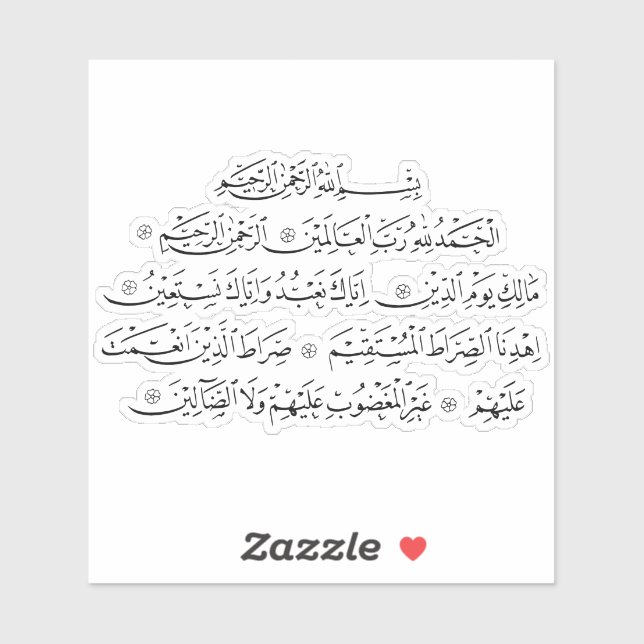 بِسْمِ اللهِ الرَّحْمٰنِ الرَّحِيْمِ
اَلْحَمْدُ لِلّٰهِ رَبِّ الْعَالَمِيْنَ ۞ اَلرَّحْمٰنِ الرَّحِيْمِ ۞
مَالِكِ يَوْمِ الدِّيْنِ ۞ اِيَّاكَ نَعْبُدُ وَاِيَّاكَ نَسْتَعِيْنُ ۞
اِهْدِنَا الصِّرَاطَ الْمُسْتَقِيْمَ ۞ صِرَاطَ الَّذِيْنَ اَنْعَمْتَ
عَلَيْهِمْ ۞ غَيْرِ الْمَغْضُوْبِ عَلَيْهِمْ وَلَا الضَّآلِّيْنَ ۞
Zazzle